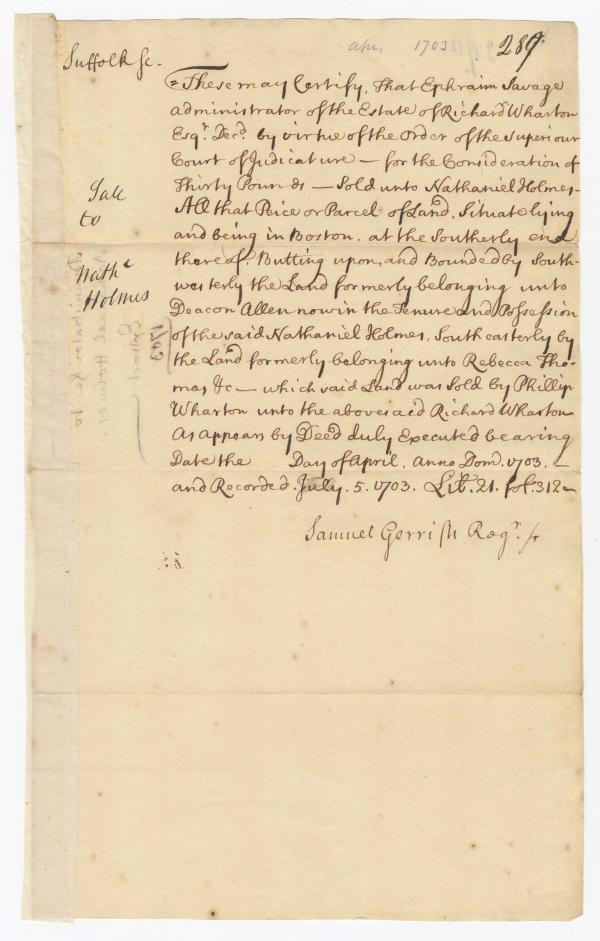 Apr. 1703
289
Suffolk sc.
These may Certify, That Ephraim Savage
administrator of the Estate of Richard Wharton
Esqr. Decd. by virtue of the Order of the Superiour
Court of Judicature — for the Consideration of
Thirty Pounds — Sold unto Nathaniel Holmes
All that Peice or Parcel of Land, Situate lying
and being in Boston, at the Southerly end
thereof. Butting upon, and Bounded by South-
westerly the Land formerly belonging unto
Deacon Allen now in the Tenure and Possession
of the said Nathaniel Holmes, Southeasterly by
the Land formerly belonging unto Rebecca Tho-
mas &c — which said Land was Sold by Phillip
Wharton unto the abovesaid Richard Wharton
As Appears by Deed duly Executed bearing
Date the Day of April, Anno Domi. 1703. —
and Recorded July. 5. 1703. Lib. 21. fol. 312
Samuel Gerrish Regr.
Sale
to
Nathl
Holmes
1703